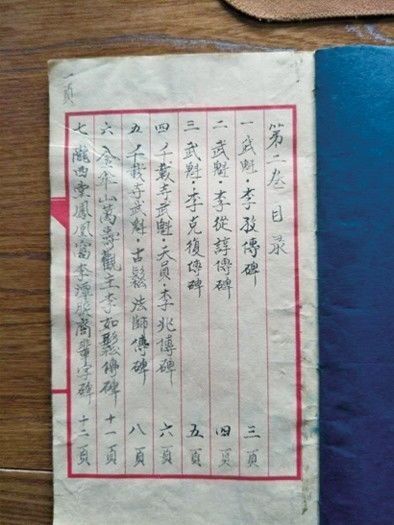 第二叁目录
一 武魁·李孜傳碑 三頁
二 武魁·李從諄傳碑 四頁
三 武魁·李克復傳碑 五頁
四 千載寺武魁·天員·李兆傳碑 六頁
五 千載寺武魁·古鬆法師傳碑 八頁
六 金年山萬壽觀主李如鬆傳碑 十一頁
七 隴西棠鳳凰富李潭族裔輩字碑 十二頁
一頁